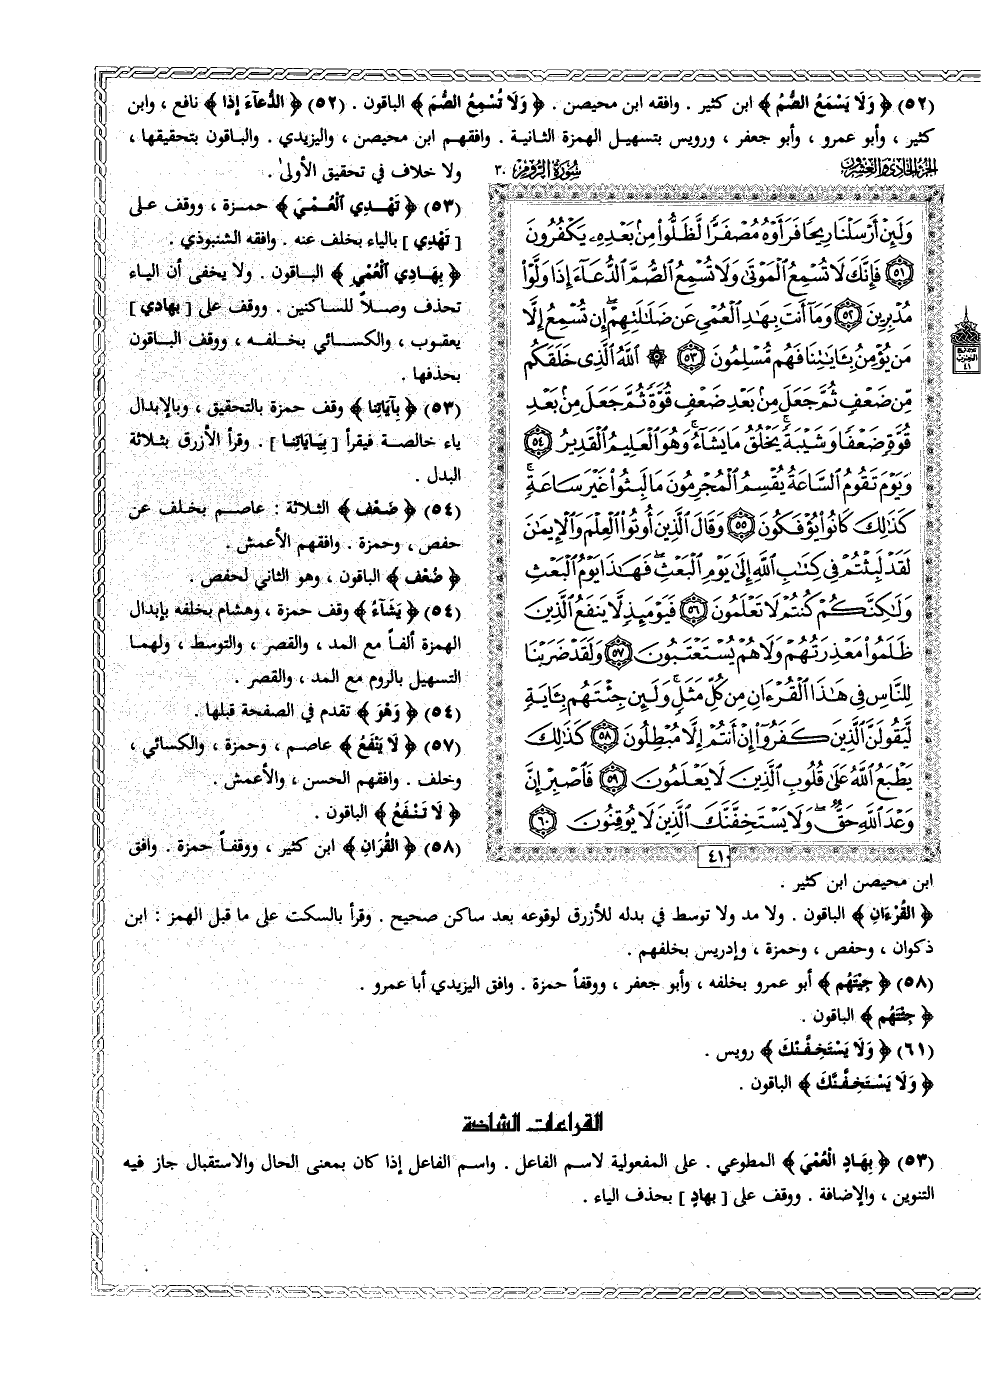 (٥٢) ﴿ وَلَا يَسْمَعُ الصُّمُ ﴾ ابن كثير . وافقه ابن محيصن . ﴿ وَلَا تُسْمِعُ الصُّمَ ﴾ الباقون . (٥٢) ﴿ الدُّعَآءَ إِذَا ﴾ نافع ، وابن
كثير ، وأبو عمرو ، وأبو جعفر ، ورويس بتسهيل الهمزة الثانية . وافقهم ابن محيصن ، واليزيدي . والباقون بتحقيقها ،
ولا خلاف في تحقيق الأولىٰ .
(٥٣) ﴿ تَهْدِي الْعُمْيَ ﴾ حمزة ، ووقف على
[ تَهْدِي ] بالياء بخلف عنه . وافقه الشنبوذي .
﴿ بِهَادِي الْعُمْيِ ﴾ الباقون . ولا يخفى أن الياء
تحذف وصلاً للساكنين . ووقف على [ بهادي ]
يعقوب ، والكسائي بخلفه ، ووقف الباقون
بحذفها .
(٥٣) ﴿ بِآيَاتِنَا ﴾ وقف حمزة بالتحقيق ، وبالإبدال
ياء خالصة فيقرأ [ بِيَايَاتِنَا ] . وقرأ الأزرق بثلاثة
البدل .
(٥٤) ﴿ ضَعْف ﴾ الثلاثة : عاصم بخلف عن
حفص ، وحمزة . وافقهم الأعمش .
﴿ ضُعْف ﴾ الباقون ، وهو الثاني لحفص .
(٥٤) ﴿ يَشَآءُ ﴾ وقف حمزة ، وهشام بخلفه بإبدال
الهمزة ألفاً مع المد ، والقصر ، والتوسط ، ولهما
التسهيل بالروم مع المد ، والقصر .
(٥٤) ﴿ وَهُوَ ﴾ تقدم في الصفحة قبلها .
(٥٧) ﴿ لَا يَنْفَعُ ﴾ عاصم ، وحمزة ، والكسائي ،
وخلف . وافقهم الحسن ، والأعمش .
﴿ لَا تَنْفَعُ ﴾ الباقون .
(٥٨) ﴿ الْقُرَانِ ﴾ ابن كثير ، ووقفاً حمزة . وافق
الجزء الحادي والعشرون
سورة الروم ٣٠
وَلَئِنْ أَرْسَلْنَا رِيحًا فَرَأَوْهُ مُصْفَرًّا لَّظَلُّوا مِنۢ بَعْدِهِۦ يَكْفُرُونَ
٥١ فَإِنَّكَ لَا تُسْمِعُ الْمَوْتَىٰ وَلَا تُسْمِعُ الصُّمَّ الدُّعَآءَ إِذَا وَلَّوْا
مُدْبِرِينَ ٥٢ وَمَآ أَنتَ بِهَٰدِ الْعُمْيِ عَن ضَلَٰلَتِهِمْ إِن تُسْمِعُ إِلَّا
مَن يُؤْمِنُ بِـَٔايَٰتِنَا فَهُم مُّسْلِمُونَ ٥٣ ۞ اللَّهُ الَّذِى خَلَقَكُم
مِّن ضَعْفٍ ثُمَّ جَعَلَ مِنۢ بَعْدِ ضَعْفٍ قُوَّةً ثُمَّ جَعَلَ مِنۢ بَعْدِ
قُوَّةٍ ضَعْفًا وَشَيْبَةً يَخْلُقُ مَا يَشَآءُ وَهُوَ الْعَلِيمُ الْقَدِيرُ ٥٤
وَيَوْمَ تَقُومُ السَّاعَةُ يُقْسِمُ الْمُجْرِمُونَ مَا لَبِثُوا غَيْرَ سَاعَةٍ
كَذَٰلِكَ كَانُوا يُؤْفَكُونَ ٥٥ وَقَالَ الَّذِينَ أُوتُوا الْعِلْمَ وَالْإِيمَٰنَ
لَقَدْ لَبِثْتُمْ فِى كِتَٰبِ اللَّهِ إِلَىٰ يَوْمِ الْبَعْثِ فَهَٰذَا يَوْمُ الْبَعْثِ
وَلَٰكِنَّكُمْ كُنتُمْ لَا تَعْلَمُونَ ٥٦ فَيَوْمَئِذٍ لَّا يَنفَعُ الَّذِينَ
ظَلَمُوا مَعْذِرَتُهُمْ وَلَا هُمْ يُسْتَعْتَبُونَ ٥٧ وَلَقَدْ ضَرَبْنَا
لِلنَّاسِ فِى هَٰذَا الْقُرْءَانِ مِن كُلِّ مَثَلٍ وَلَئِن جِئْتَهُم بِـَٔايَةٍ
لَّيَقُولَنَّ الَّذِينَ كَفَرُوٓا إِنْ أَنتُمْ إِلَّا مُبْطِلُونَ ٥٨ كَذَٰلِكَ
يَطْبَعُ اللَّهُ عَلَىٰ قُلُوبِ الَّذِينَ لَا يَعْلَمُونَ ٥٩ فَاصْبِرْ إِنَّ
وَعْدَ اللَّهِ حَقٌّ وَلَا يَسْتَخِفَّنَّكَ الَّذِينَ لَا يُوقِنُونَ ٦٠
٤١٠
الحزب
٤١
ابن محيصن ابن كثير .
﴿ الْقُرْءَانِ ﴾ الباقون . ولا مد ولا توسط في بدله للأزرق لوقوعه بعد ساكن صحيح . وقرأ بالسكت على ما قبل الهمز : ابن
ذكوان ، وحفص ، وحمزة ، وإدريس بخلفهم .
(٥٨) ﴿ جِيْتَهُم ﴾ أبو عمرو بخلفه ، وأبو جعفر ، ووقفاً حمزة . وافق اليزيدي أبا عمرو .
﴿ جِئْتَهُم ﴾ الباقون .
(٦١) ﴿ وَلَا يَسْتَخِفَّنْكَ ﴾ رويس .
﴿ وَلَا يَسْتَخِفَّنَّكَ ﴾ الباقون .
القراءات الشاذة
(٥٣) ﴿ بِهَادٍ الْعُمْيَ ﴾ المطوعي . على المفعولية لاسم الفاعل . واسم الفاعل إذا كان بمعنى الحال والاستقبال جاز فيه
التنوين ، والإضافة . ووقف على [ بهادٍ ] بحذف الياء .